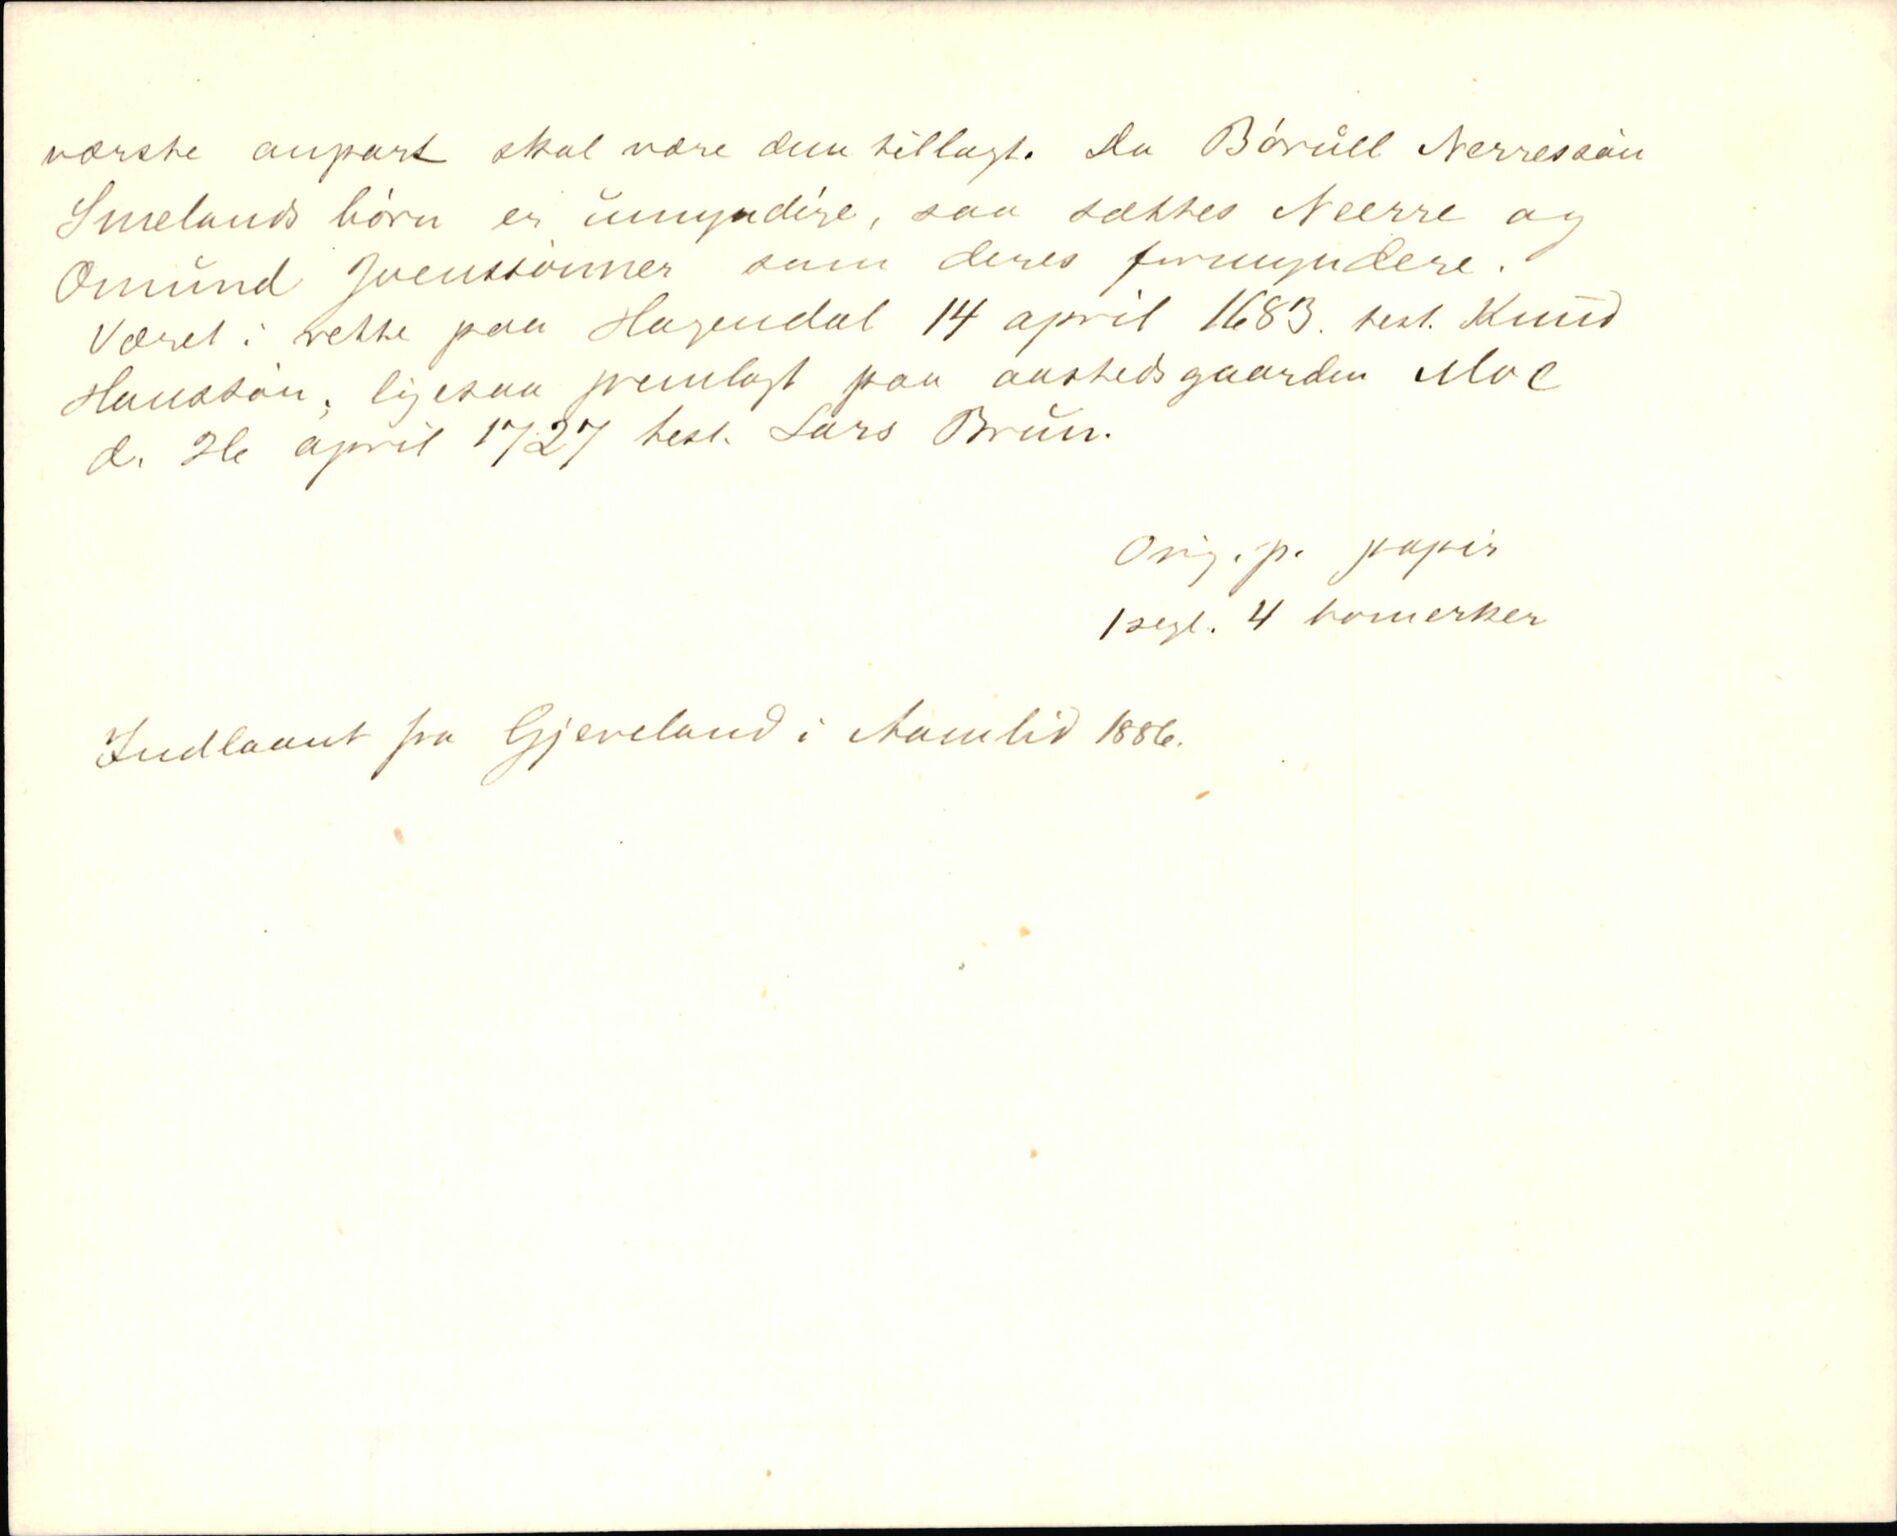 værste anpart skal være dem tillagt. Da Börull Nerressön
Smelands börn er umyndige, saa sættes Neerre og
Omund Jvenssönner som deres formyndere.
Været i rette paa Hagendal 14 april 1683. test. Knud
Hanssön, ligesaa fremlagt paa aastedsgaarden Moe
d. 26 april 1727 test. Lars Brun.
Orig. p. papir
1 segl. 4 bomerker
Indlaant fra Gjeveland i Aamlid 1886.